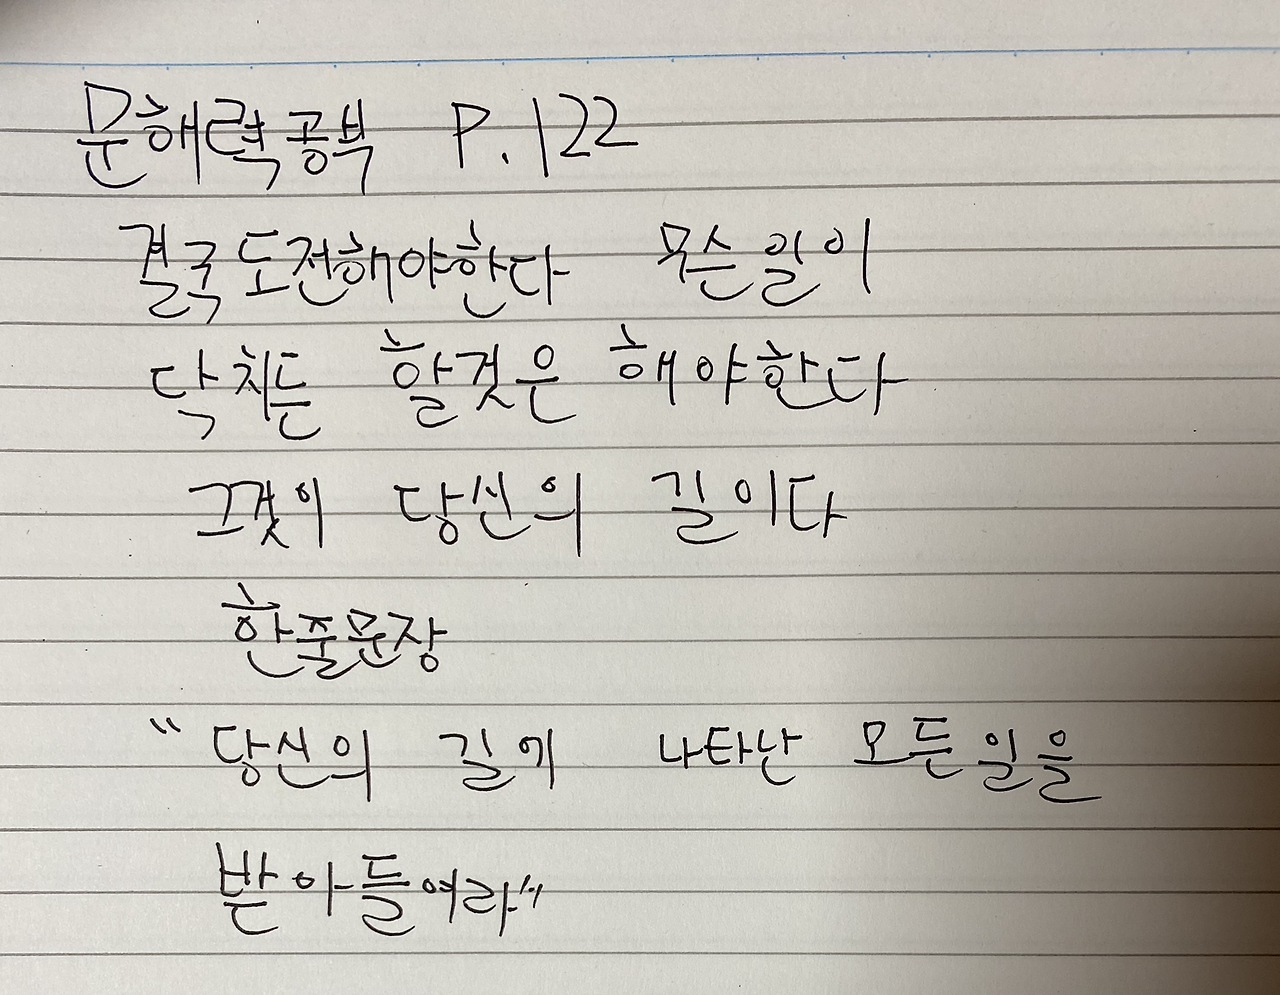 문해력공부 P.122
결국 도전해야한다 무슨일이
닥치든 할것은 해야한다
그것이 당신의 길이다
한줄문장
"당신의 길에 나타난 모든일을
받아들여라"